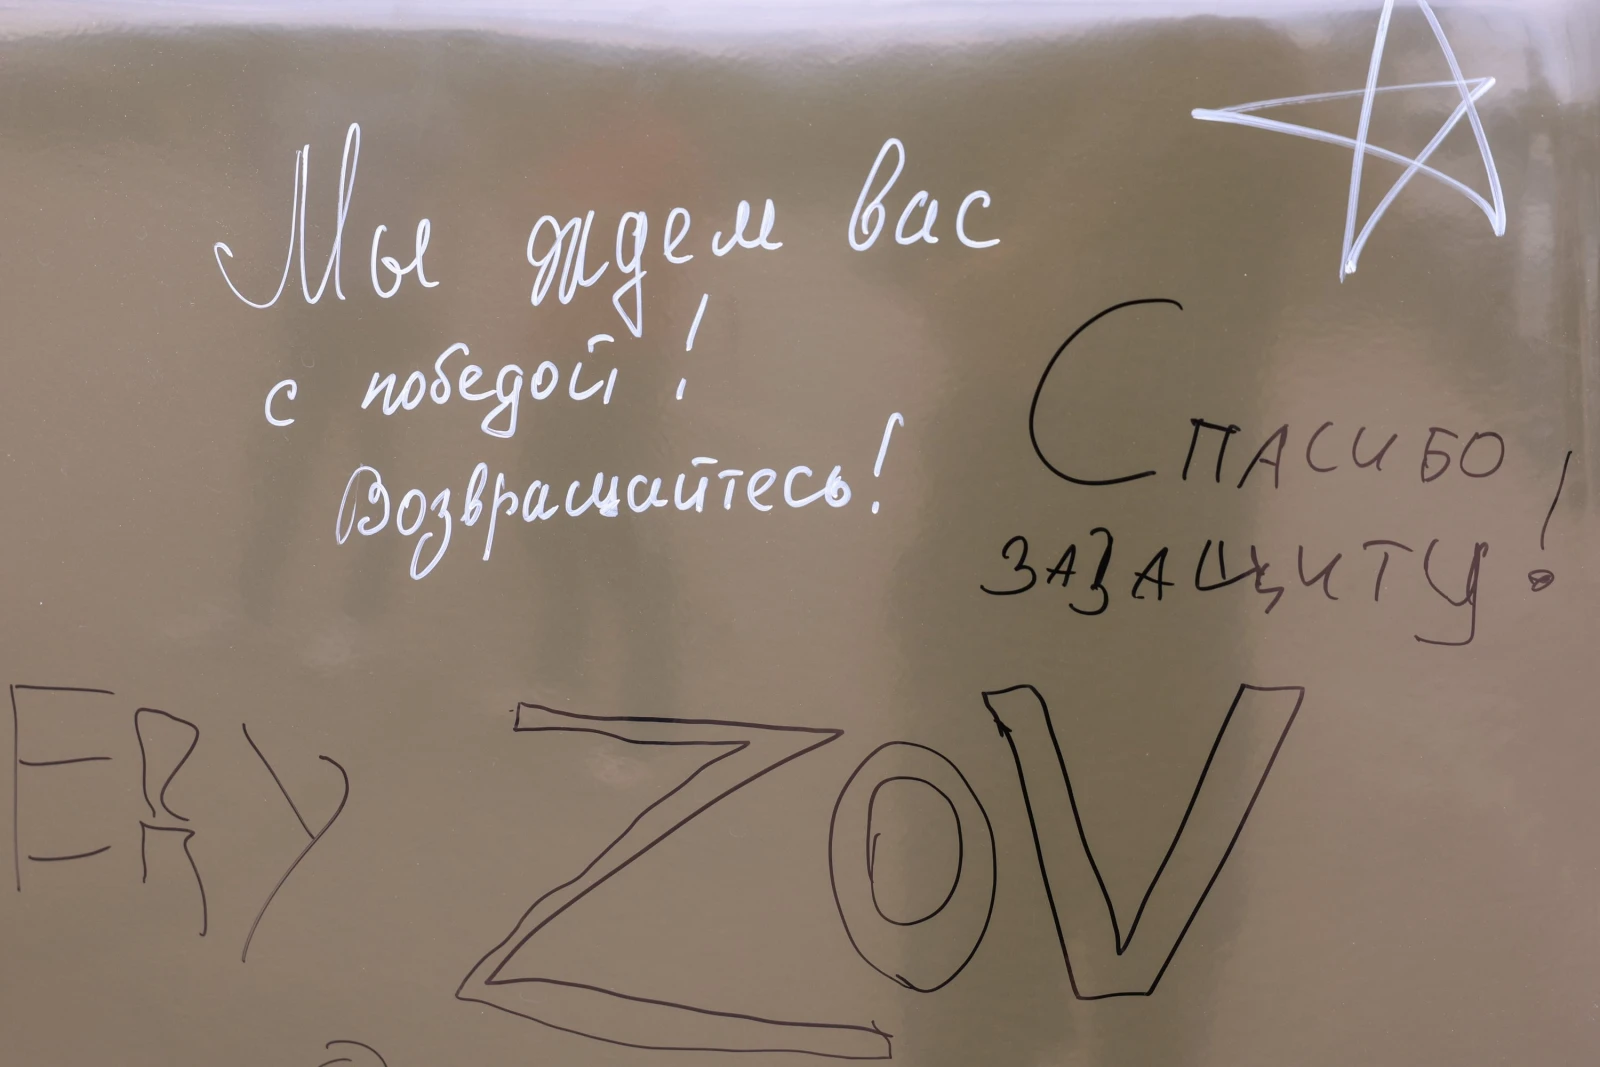 Мы ждем вас
с победой!
Возвращайтесь!
Спасибо
за защиту!
ZOV